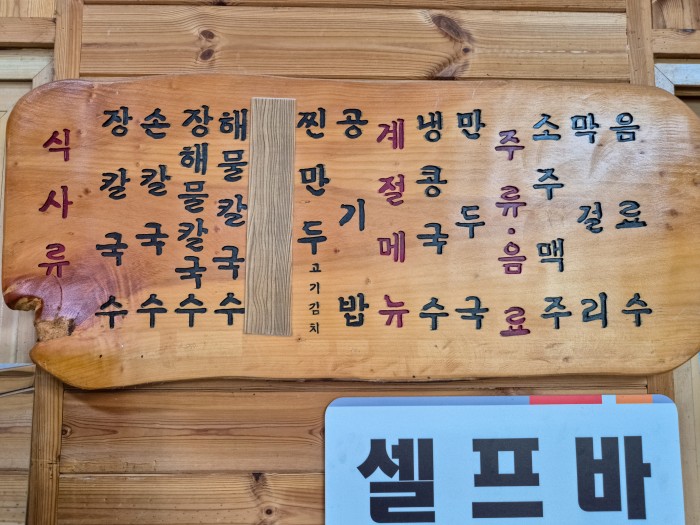 식사류
장칼국수
손칼국수
장해물칼국수
해물칼국수
찐만두
고기김치
공기밥
계절메뉴
냉콩국수
만두국
주류·음료
소주맥주
막걸리
음료수
셀프바